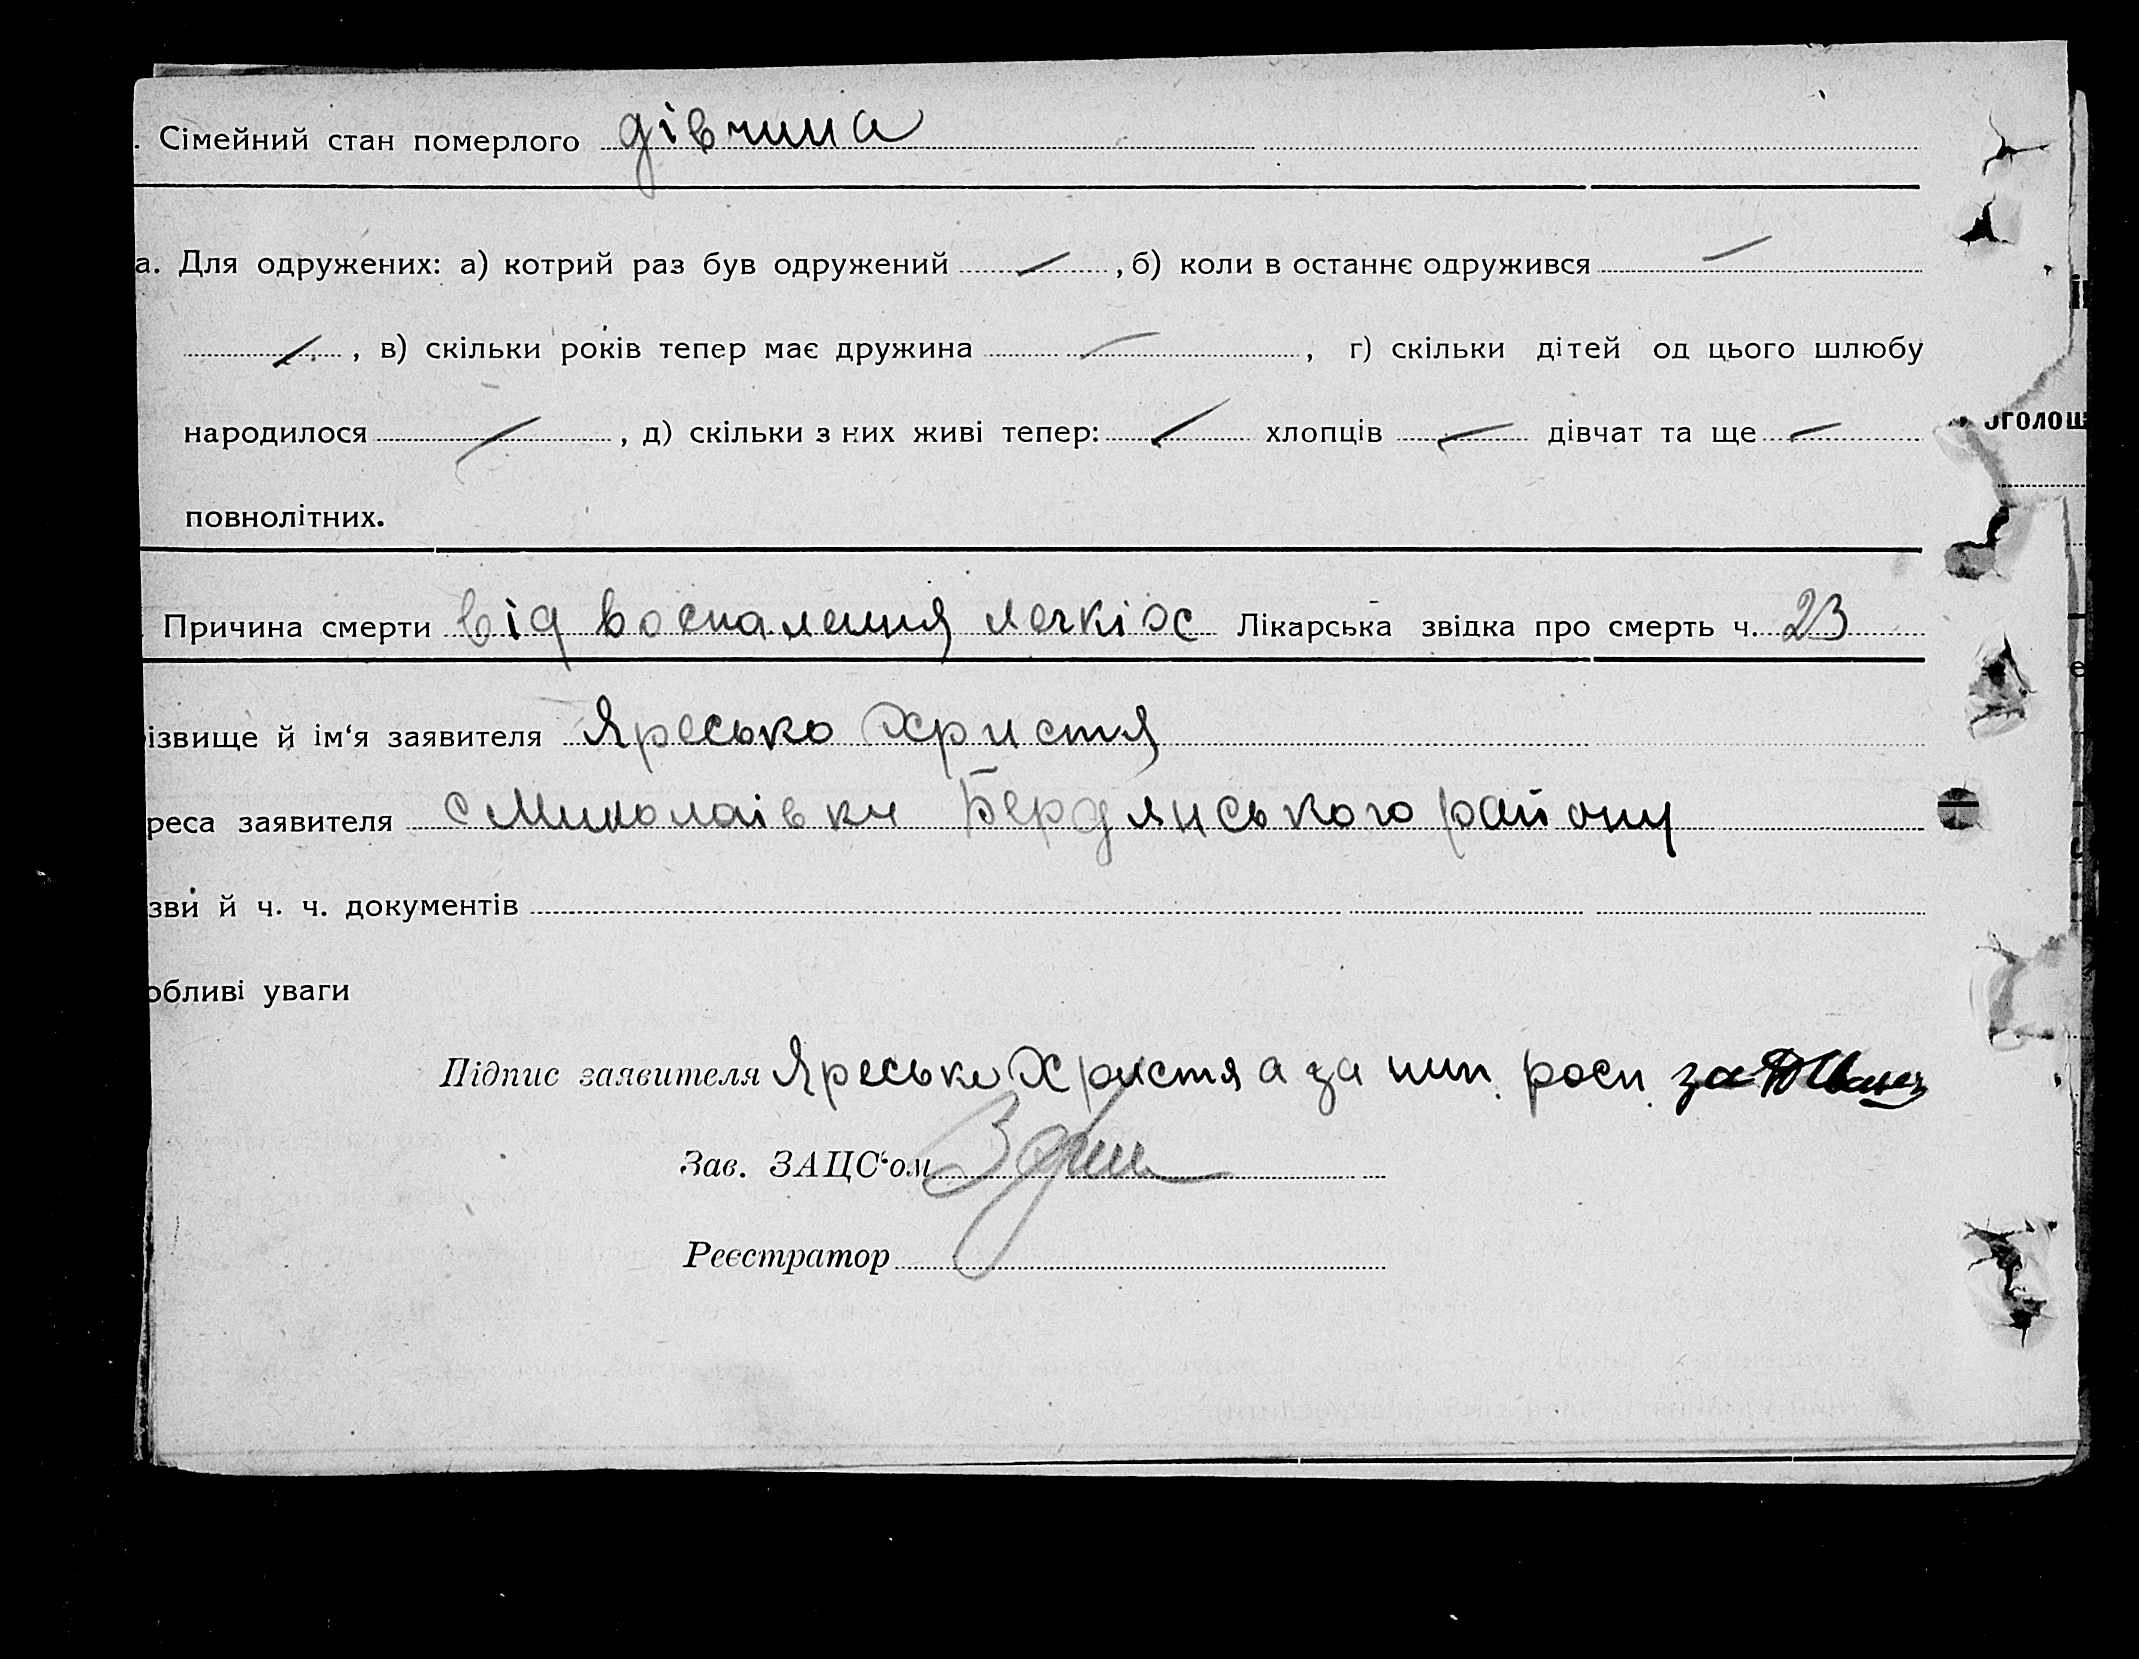 . Сімейний стан померлого дівчина
а. Для одружених: а) котрий раз був одружений — , б) коли в останнє одружився —
— , в) скільки років тепер має дружина — , г) скільки дітей од цього шлюбу
народилося — , д) скільки з них живі тепер: — хлопців — дівчат та ще —
повнолітних.
Причина смерти від воспалення легкіх Лікарська звідка про смерть ч. 23
ізвище й ім‘я заявителя Яресько Христя
реса заявителя с Миколаівки Бердянського району
зви й ч. ч. документів
обливі уваги
Підпис заявителя Яресько Христя а за нип. росп.
Зав. ЗАЦС‘ом
Реєстратор
оголош